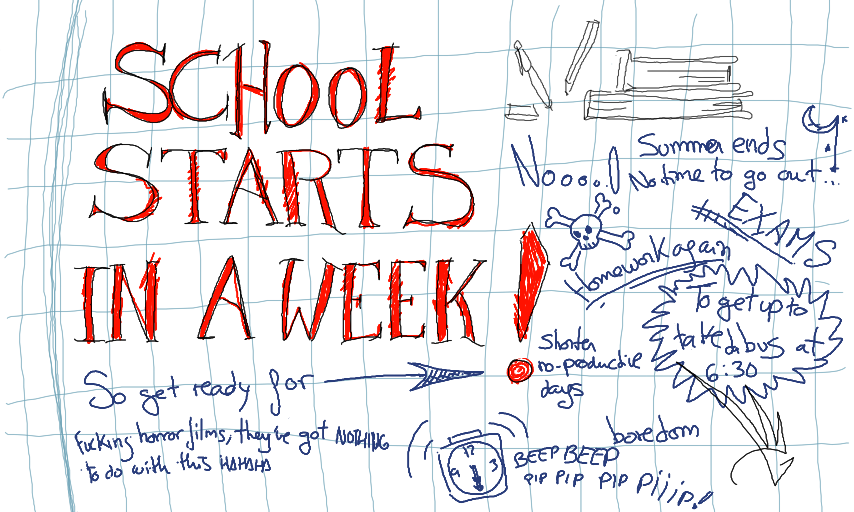 SCHOOL
STARTS
IN A WEEK!
So get ready for
Fucking horror films, they've got NOTHING
to do with this HAHAHA
Nooo..!
Summer ends
No time to go out...
EXAMS
Homework again
To get up to
take a bus at
6:30
Shorter
no-productive
days
boredom
12
9 3
BEEP BEEP
PIP PIP PIP Piiip!